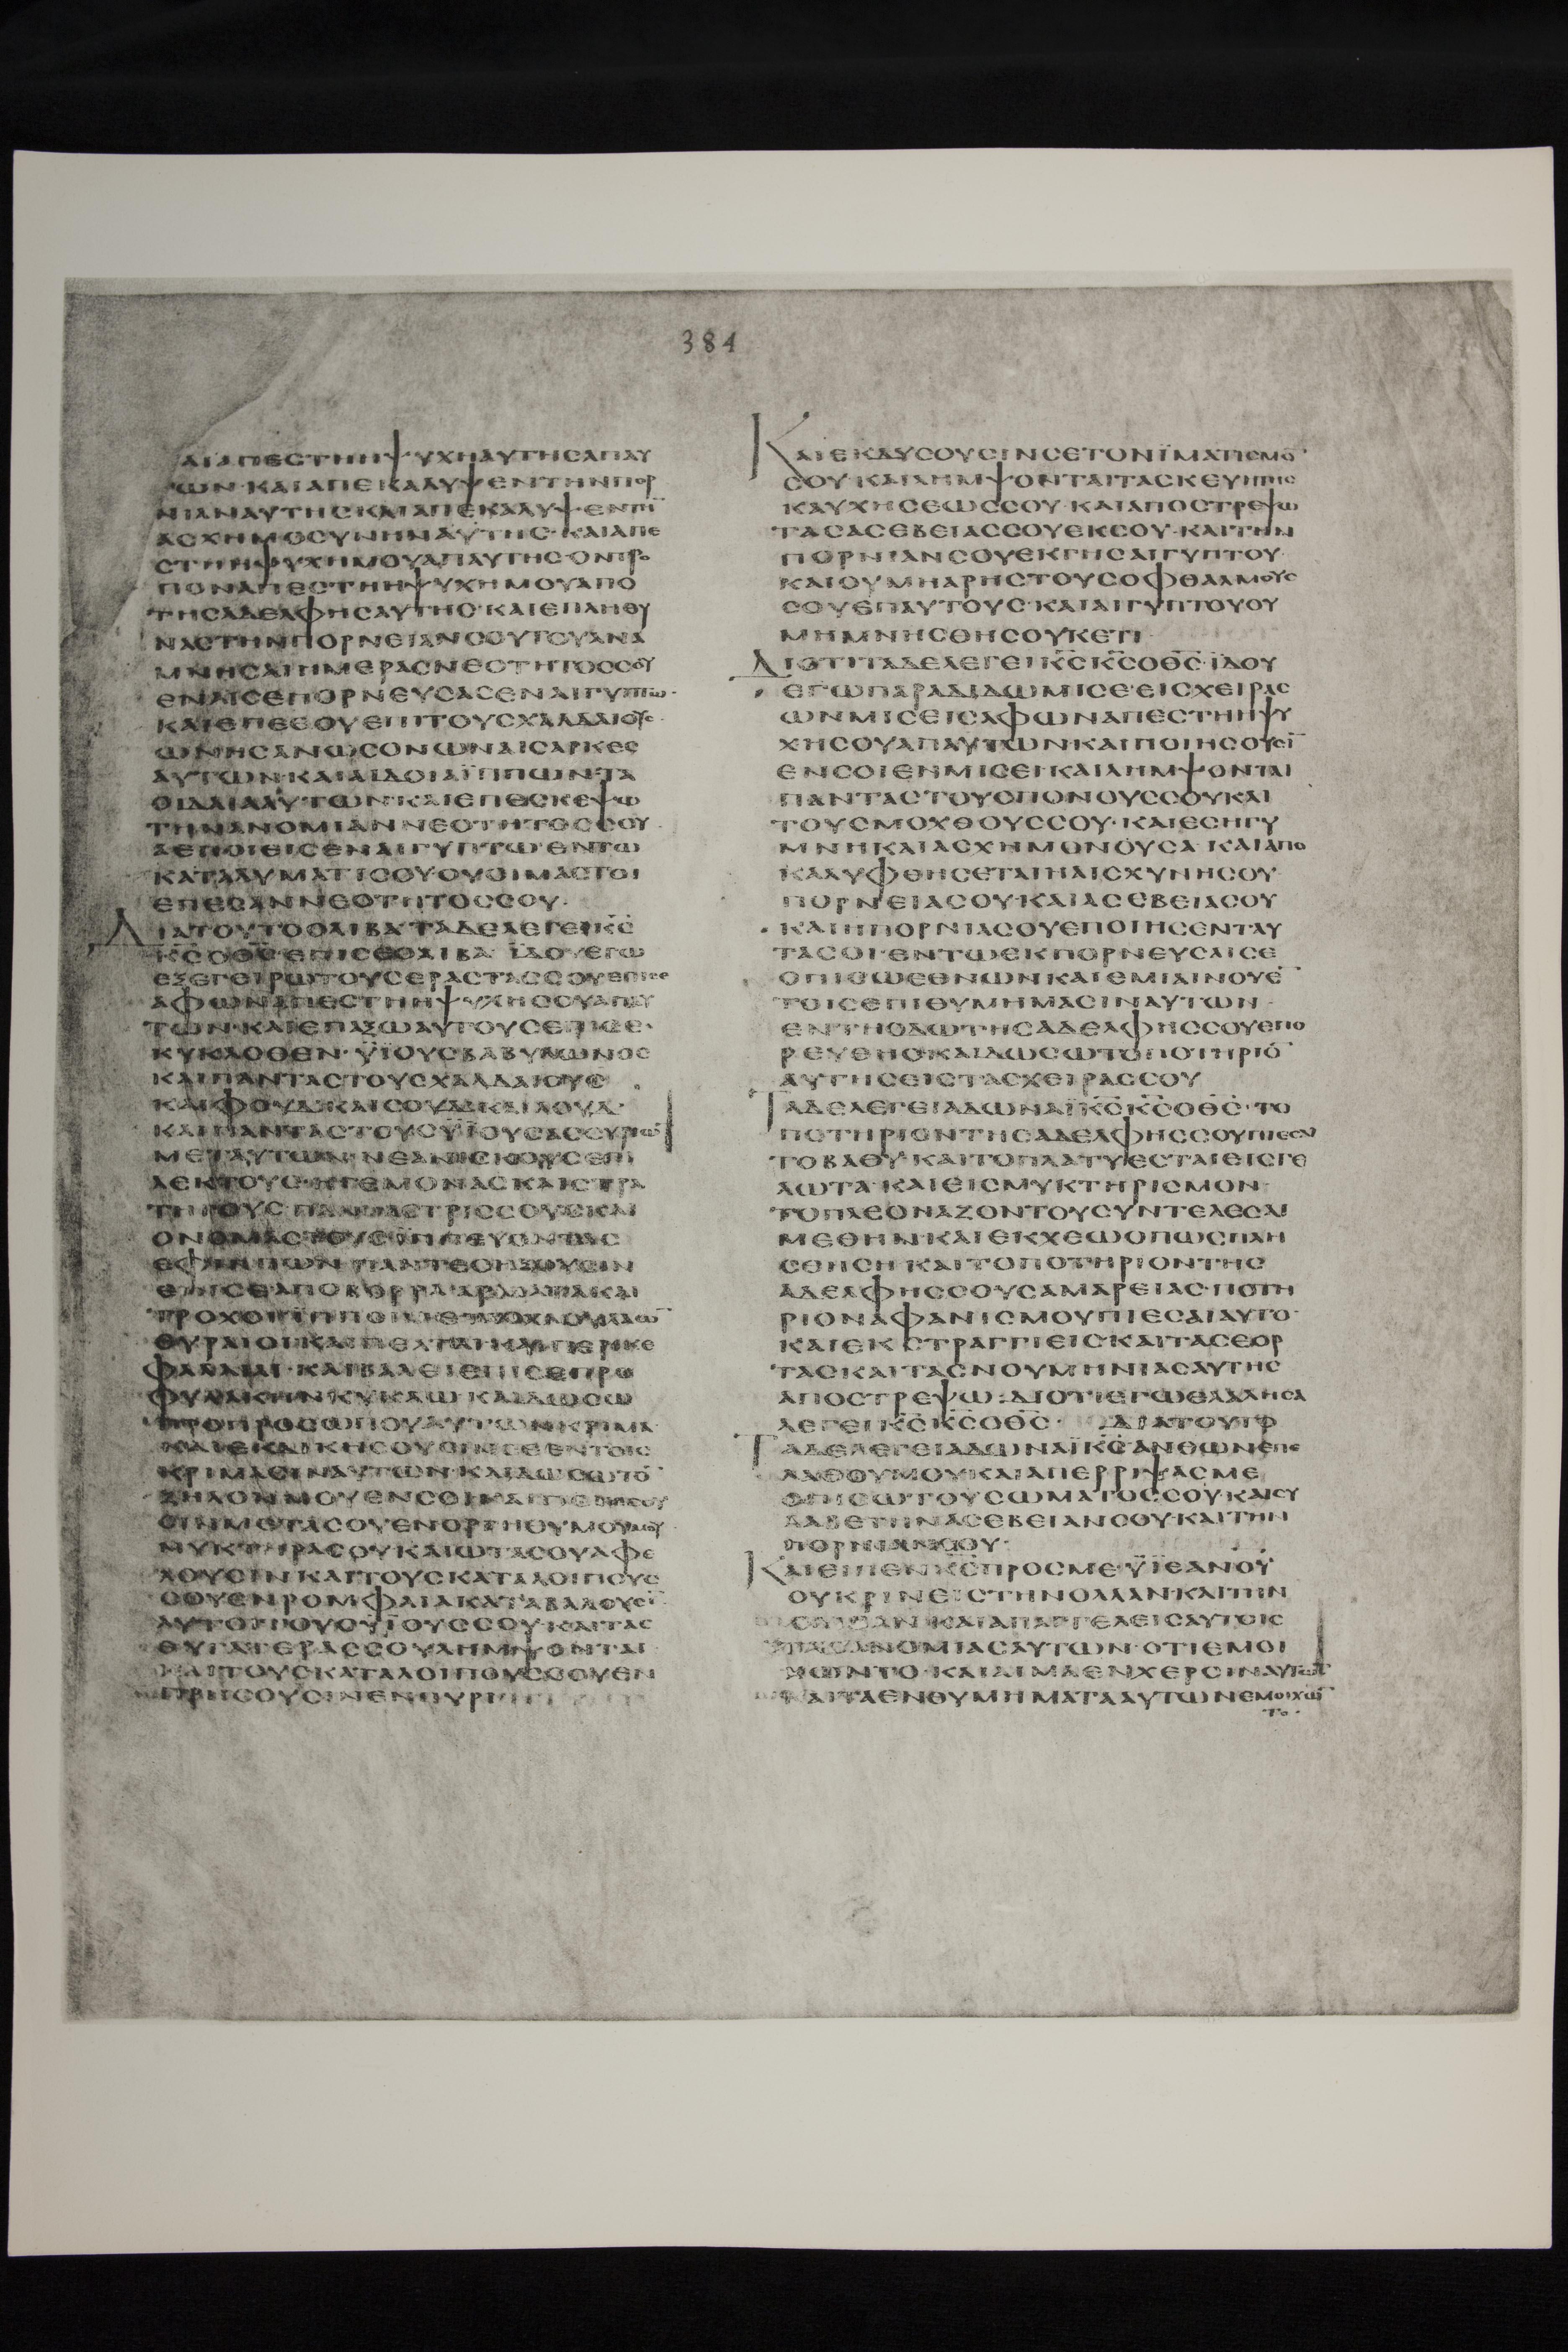 384
ΑΙΑΠΕϹΤΗΗΨΥΧΗΑΥΤΗϹΑΠΑΥ
ΤΩΝ·ΚΑΙΑΠΕΚΑΛΥΨΕΝΤΗΝΠΟΡ
ΝΙΑΝΑΥΤΗϹΚΑΙΑΠΕΚΑΛΥΨΕΝΤΗ̅
ΑϹΧΗΜΟϹΥΝΗΝΑΥΤΗϹ·ΚΑΙΑΠΕ
ϹΤΗΗΨΥΧΗΜΟΥΑΠΑΥΤΗϹ·ΟΝΤΡΟ
ΠΟΝΑΠΕϹΤΗΗΨΥΧΗΜΟΥΑΠΟ
ΤΗϹΑΔΕΛΦΗϹΑΥΤΗϹ·ΚΑΙΕΠΛΗΘΥ
ΝΑϹΤΗΝΠΟΡΝΕΙΑΝϹΟΥΤΟΥΑΝΑ
ΜΝΗϹΑΙΗΜΕΡΑϹΝΕΟΤΗΤΟϹϹΟΥ
ΕΝΑΙϹΕΠΟΡΝΕΥϹΑϹΕΝΑΙΓΥΠΤΩ·
ΚΑΙΕΠΕΘΟΥΕΠΙΤΟΥϹΧΑΛΔΑΙΟΥϹ·
ΩΝΗϹΑΝΩϹΟΝΩΝΑΙϹΑΡΚΕϹ
ΑΥΤΩΝ·ΚΑΙΑΙΔΟΙΑΪΠΠΩΝΤΑ
ΟΙΔΑΙΑΑΥΤΩΝ·ΚΑΙΕΠΕϹΚΕΨΩ
ΤΗΝΑΝΟΜΙΑΝΝΕΟΤΗΤΟϹϹΟΥ·
ΑΕΠΟΙΕΙϹΕΝΑΙΓΥΠΤΩ·ΕΝΤΩ
ΚΑΤΑΛΥΜΑΤΙϹΟΥ·ΟΥΟΙΜΑϹΤΟΙ
ΕΠΕϹΑΝΝΕΟΤΗΤΟϹϹΟΥ·
ΔΙΑΤΟΥΤΟΟΛΙΒΑΤΑΔΕΛΕΓΕΙΚ̅Ϲ̅
Κ̅Ϲ̅ΟΘ̅Ϲ̅
ΕΞΕΓΕΙΡΩΤΟΥϹΕΡΑϹΤΑϹϹΟΥΕΠΙϹΕ
ΑΦΩΝΑΠΕϹΤΗΗΨΥΧΗϹΟΥΑΠΑΥ
ΤΩΝ·ΚΑΙΕΠΑΞΩΑΥΤΟΥϹΕΠΙϹΕ·
ΚΥΚΛΟΘΕΝ·ΫΪΟΥϹΒΑΒΥΛΩΝΟϹ
ΚΑΙΠΑΝΤΑϹΤΟΥϹΧΑΛΔΑΙΟΥϹ
ΚΑΙΦΟΥΔΚΑΙϹΟΥΔΚΑΙΛΟΥΔ·
ΚΑΙΠΑΝΤΑϹΤΟΥϹΫΪΟΥϹΑϹϹΥΡΙΩ̅
ΜΕΤΑΥΤΩΝ·ΝΕΑΝΙϹΚΟΥϹΕΠΙ
ΛΕΚΤΟΥϹ·ΗΓΕΜΟΝΑϹΚΑΙϹΤΡΑ
ΤΗΓΟΥϹ
ΟΝΟΜΑϹΤΟΥϹΪΠΠΕΥΟΝΤΑϹ
ΕΦΙΠΠΩΝ·ΠΑΝΤΕϹΗΞΟΥϹΙΝ
ΕΠΙϹΕΑΠΟΒΟΡΡΑ·ΑΡΜΑΤΑΚΑΙ
ΤΡΟΧΟΙ
ΘΥΡΑΙΟΙ·ΚΑΙΠΕΛΤΑΙ·ΚΑΙΠΕΡΙΚΕ
ΦΑΛΑΙΑΙ·ΚΑΙΒΑΛΕΙΕΠΙϹΕΠΡΟ
ΦΥΛΑΚΗΝΚΥΚΛΩ·ΚΑΙΔΩϹΩ
ΠΡΟΠΡΟϹΩΠΟΥΑΥΤΩΝΚΡΙΜΑ·
ΚΑΙΕΚΔΙΚΗϹΟΥϹΙΝϹΕΕΝΤΟΙϹ
ΚΡΙΜΑϹΙΝΑΥΤΩΝ·ΚΑΙΔΩϹΩΤΟ̅
ΖΗΛΟΝΜΟΥΕΝϹΟΙ
ΜΥΚΤΗΡΑϹΟΥΚΑΙΩΤΑϹΟΥΑΦΕ
ΛΟΥϹΙΝ·ΚΑΙΤΟΥϹΚΑΤΑΛΟΙΠΟΥϹ
ϹΟΥΕΝΡΟΜΦΑΙΑΚΑΤΑΒΑΛΟΥϹΙ̅
ΑΥΤΟΙΤΟΥϹΫΪΟΥϹϹΟΥ·ΚΑΙΤΑϹ
ΘΥΓΑΤΕΡΑϹϹΟΥΛΗΜΨΟΝΤΑΙ
ΚΑΙΤΟΥϹΚΑΤΑΛΟΙΠΟΥϹϹΟΥΕΝ
ΠΡΗϹΟΥϹΙΝΕΝΠΥΡΙ
ΚΑΙΕΚΔΥϹΟΥϹΙΝϹΕΤΟΝΪΜΑΤΙϹΜΟ̅
ϹΟΥ·ΚΑΙΛΗΜΨΟΝΤΑΙΤΑϹΚΕΥΗΤΗϹ
ΚΑΥΧΗϹΕΩϹϹΟΥ·ΚΑΙΑΠΟϹΤΡΕΨΩ
ΤΑϹΑϹΕΒΕΙΑϹϹΟΥΕΚϹΟΥ·ΚΑΙΤΗΝ
ΠΟΡΝΙΑΝϹΟΥΕΚΓΗϹΑΙΓΥΠΤΟΥ·
ΚΑΙΟΥΜΗΑΡΗϹΤΟΥϹΟΦΘΑΛΜΟΥϹ
ϹΟΥΕΠΑΥΤΟΥϹ·ΚΑΙΑΙΓΥΠΤΟΥΟΥ
ΜΗΜΝΗϹΘΗϹΟΥΚΕΤΙ·
ΔΙΟΤΙΤΑΔΕΛΕΓΕΙΚ̅Ϲ̅Κ̅Ϲ̅ΟΘ̅Ϲ̅·ΪΔΟΥ
ΕΓΩΠΑΡΑΔΙΔΩΜΙϹΕ·ΕΙϹΧΕΙΡΑϹ
ΩΝΜΙϹΕΙϹΑΦΩΝΑΠΕϹΤΗΗΨΥ
ΧΗϹΟΥΑΠΑΥΤΩΝ·ΚΑΙΠΟΙΗϹΟΥϹΙ̅
ΕΝϹΟΙΕΝΜΙϹΕΙ·ΚΑΙΛΗΜΨΟΝΤΑΙ
ΠΑΝΤΑϹΤΟΥϹΠΟΝΟΥϹϹΟΥΚΑΙ
ΤΟΥϹΜΟΧΘΟΥϹϹΟΥ·ΚΑΙΕϹΗΓΥ
ΜΝΗΚΑΙΑϹΧΗΜΟΝΟΥϹΑ·ΚΑΙΑΠΟ
ΚΑΛΥΦΘΗϹΕΤΑΙΗΑΙϹΧΥΝΗϹΟΥ·
ΠΟΡΝΕΙΑϹΟΥ·ΚΑΙΑϹΕΒΕΙΑϹΟΥ
ΚΑΙΗΠΟΡΝΙΑϹΟΥΕΠΟΙΗϹΕΝΤΑΥ
ΤΑϹΟΙ·ΕΝΤΩΕΚΠΟΡΝΕΥϹΑΙϹΕ
ΟΠΙϹΩΕΘΝΩΝΚΑΙΕΜΙΑΙΝΟΥΕ̅
ΤΟΙϹΕΠΙΘΥΜΗΜΑϹΙΝΑΥΤΩΝ·
ΕΝΤΗΟΔΩΤΗϹΑΔΕΛΦΗϹϹΟΥΕΠΟ
ΡΕΥΘΗϹ·ΚΑΙΔΩϹΩΤΟΠΟΤΗΡΙΟ̅
ΑΥΤΗϹΕΙϹΤΑϹΧΕΙΡΑϹϹΟΥ
ΤΑΔΕΛΕΓΕΙΑΔΩΝΑΪΚ̅Ϲ̅Κ̅Ϲ̅ΟΘ̅Ϲ̅·ΤΟ
ΠΟΤΗΡΙΟΝΤΗϹΑΔΕΛΦΗϹϹΟΥΠΙΕϹΑΙ
ΤΟΒΑΘΥ·ΚΑΙΤΟΠΛΑΤΥ·ΕϹΤΑΙΕΙϹΓΕ
ΛΩΤΑ·ΚΑΙΕΙϹΜΥΚΤΗΡΙϹΜΟΝ·
ΤΟΠΛΕΟΝΑΖΟΝΤΟΥϹΥΝΤΕΛΕϹΑΙ
ΜΕΘΗΝ·ΚΑΙΕΚΧΕΩΟΠΩϹΠΛΗ
ϹΘΗϹΗ·ΚΑΙΤΟΠΟΤΗΡΙΟΝΤΗϹ
ΑΔΕΛΦΗϹϹΟΥϹΑΜΑΡΕΙΑϹ·ΠΟΤΗ
ΡΙΟΝΑΦΑΝΙϹΜΟΥΠΙΕϹΑΙΑΥΤΟ·
ΚΑΙΕΚϹΤΡΑΓΓΙΕΙϹΚΑΙΤΑϹΕΟΡ
ΤΑϹΚΑΙΤΑϹΝΟΥΜΗΝΙΑϹΑΥΤΗϹ
ΑΠΟϹΤΡΕΨΩ·ΔΙΟΤΙΕΓΩΕΛΑΛΗϹΑ
ΛΕΓΕΙΚ̅Ϲ̅Κ̅Ϲ̅ΟΘ̅Ϲ̅· ΔΙΑΤΟΥΤΟ
ΤΑΔΕΛΕΓΕΙΑΔΩΝΑΪΚ̅Ϲ̅ΑΝΘΩΝΕΠΕ
ΛΑΘΟΥΜΟΥΚΑΙΑΠΕΡΡΙΨΑϹΜΕ
ΟΠΙϹΩΤΟΥϹΩΜΑΤΟϹϹΟΥ·ΚΑΙϹΥ
ΛΑΒΕΤΗΝΑϹΕΒΕΙΑΝϹΟΥ·ΚΑΙΤΗΝ
ΠΟΡΝΙΑΝϹΟΥ·
ΚΑΙΕΙΠΕΝΚ̅Ϲ̅ΠΡΟϹΜΕ·ΫΪΕΑΝΟΥ̅
ΟΥΚΡΙΝΕΙϹΤΗΝΟΛΛΑΝ·ΚΑΙΤΗΝ
ΚΑΙΑΠΑΓΓΕΛΕΙϹΑΥΤΟΙϹ
ΤΑϹΑΝΟΜΙΑϹΑΥΤΩΝ·ΟΤΙΕΜΟΙ
ΧΩΝΤΟ·ΚΑΙΑΙΜΑΕΝΧΕΡϹΙΝΑΥΤΩ̅
ΚΑΙΤΑΕΝΘΥΜΗΜΑΤΑΑΥΤΩΝΕΜΟΙΧΩ̅
ΤΟ·